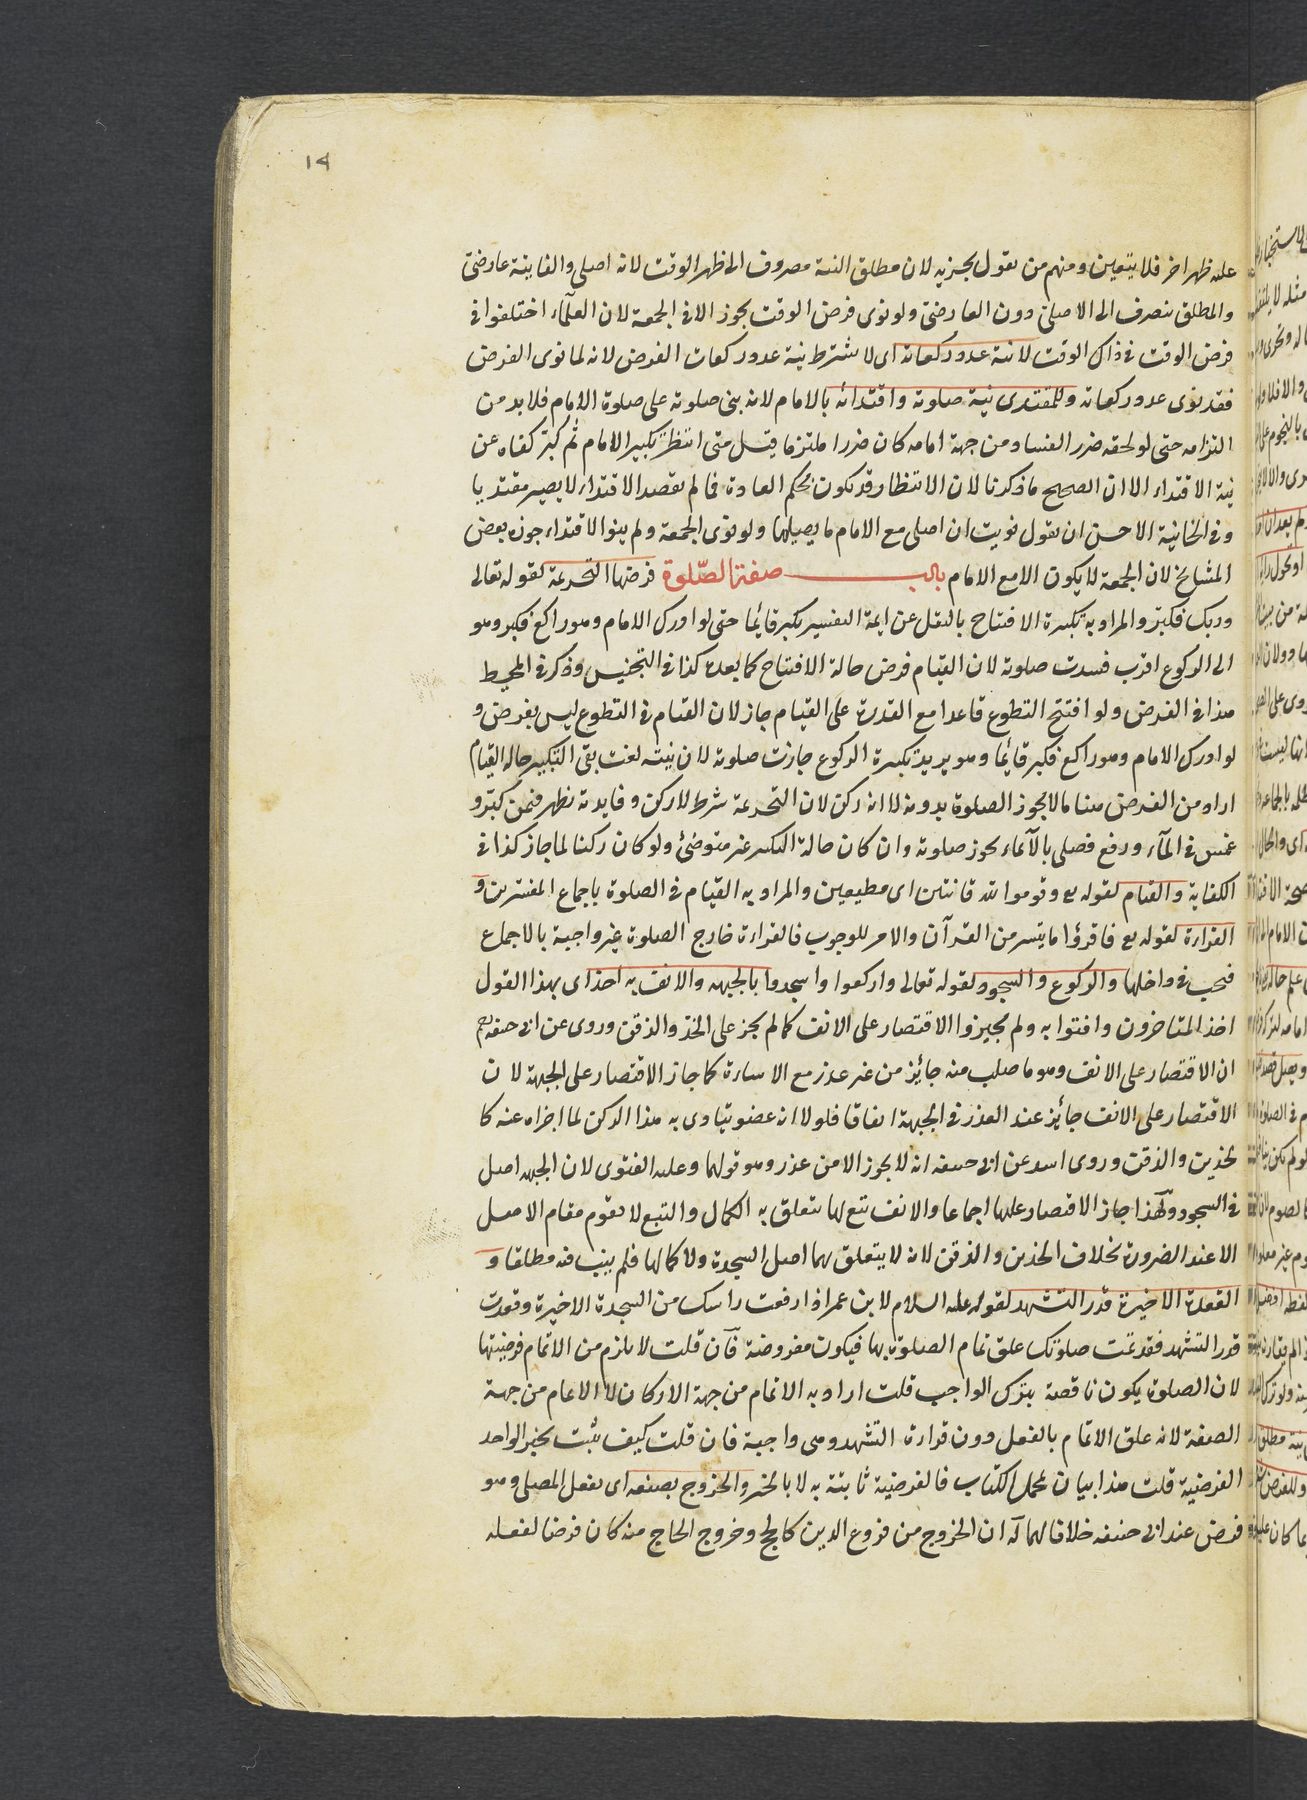 ١٩
عليه ظهرا اخر فلا يتعين ومنهم من يقول يجزيه لان مطلق النية مصروف الى ظهر الوقت لانه اصلى والفايتة عارضى
والمطلق ينصرف الى الاصلى دون العارضى ولو نوى فرض الوقت يجوز الا فى الجمعة لان العلماء اختلفوا فى
فرض الوقت فى ذاك الوقت لا نية عدد ركعاته اى لا يشترط نية عدد ركعات الفرض لانه لما نوى الفرض
فقد نوى عدد ركعاته وللمقتدى نية صلوته واقتدائه بالامام لانه بنى صلوته على صلوة الامام فلا بد من
التزامه حتى لو لحقه ضرر الفساد من جهة امامه كان ضررا ملتزما قيل متى انتظر تكبير الامام ثم كبر كفاه عن
نية الاقتداء الا ان الصحيح ما ذكرنا لان الانتظار قد يكون بحكم العادة فما لم يقصد الاقتداء لا يصير مقتديا
وفى الخانية الاحسن ان يقول نويت ان اصلى مع الامام ما يصليها ولو نوى الجمعة ولم ينو الاقتداء جوزه بعض
المشايخ لان الجمعة لا يكون الا مع الامام باب صفة الصّلوة فرضها التحريمة لقوله تعالى
وربك فكبر والمراد به تكبيرة الافتتاح بالنقل عن ايمة التفسير يكبر قائما حتى لو ادرك الامام وهو راكع فكبر وهو
الى الركوع اقرب فسدت صلوته لان القيام فرض حالة الافتتاح كما بعده كذا فى التجنيس وذكر فى المحيط
هذا فى الفرض ولو افتتح التطوع قاعدا مع القدرة على القيام جاز لان القيام فى التطوع ليس بفرض و
لو ادرك الامام وهو راكع فكبر قائما وهو يريد تكبيرة الركوع جازت صلوته لان نيته لغت بقى التكبير حالة القيام
اراد من الفرض هنا ما لا يجوز الصلوة بدونه لا انه ركن لان التحريمة شرط لا ركن وفايدته تظهر فيمن كبر و
غمس فى المآء ورفع فصلى بالايماء يجوز صلوته وان كان حالة التكبير غير متوضئ ولو كان ركنا لما جاز كذا فى
الكفاية والقيام لقوله تع وقوموا لله قانتين اى مطيعين والمراد به القيام فى الصلوة باجماع المفسرين و
القراءة لقوله تع فاقرؤا ما تيسر من القرآن والامر للوجوب فالقراءة خارج الصلوة غير واجبة بالاجماع
فيجب فى داخلها والركوع والسجود لقوله تعالى واركعوا واسجدوا بالجبهه والانف به اخذ اى بهذا القول
اخذ المتاخرون وافتوا به ولم يجيزوا الاقتصار على الانف كما لم يجز على الخد والذقن وروى عن ابى حنيفة
ان الاقتصار على الانف وهو ما صلب منه جائز من غير عذر مع الاساءة كما جاز الاقتصار على الجبهة لان
الاقتصار على الانف جائز عند العذر فى الجبهة اتفاقا فلولا انه عضو يتادى به هذا الركن لما اجزاه عنه كا
لخدين والذقن وروى اسد عن ابى حنيفه انه لا يجوز الا من عذر وهو قولهما وعليه الفتوى لان الجبهه اصل
فى السجود ولهذا جاز الاقتصار عليها اجماعا والانف تبع لها يتعلق به الكمال والتبع لا يقوم مقام الاصل
الا عند الضرورة بخلاف الخدين والذقن لانه لا يتعلق بهما اصل السجدة ولا كمالها فلم ينب عنه مطلقا و
القعدة الاخيرة قدر التشهد لقوله عليه السلام لابن عمر اذا رفعت راسك من السجدة الاخيرة وقعدت
قدر التشهد فقد تمت صلوتك علق تمام الصلوة بها فيكون مفروضة فان قلت لا يلزم من الاتمام فرضيتها
لان الصلوة يكون ناقصة بترك الواجب قلت اراد به الاتمام من جهة الاركان لا الاتمام من جهة
الصفة لانه علق الاتمام بالفعل دون قراءة التشهد وهى واجبة فان قلت كيف يثبت بخبر الواحد
الفرضية قلت هذا بيان لمجمل الكتاب فالفرضية ثابتة به لا بالخبر والخروج بصنعه اى بفعل المصلى وهو
فرض عند ابى حنيفه خلافا لهما له ان الخروج من فروع الدين كالحج وخروج الحاج منه كان فرضا لفعله